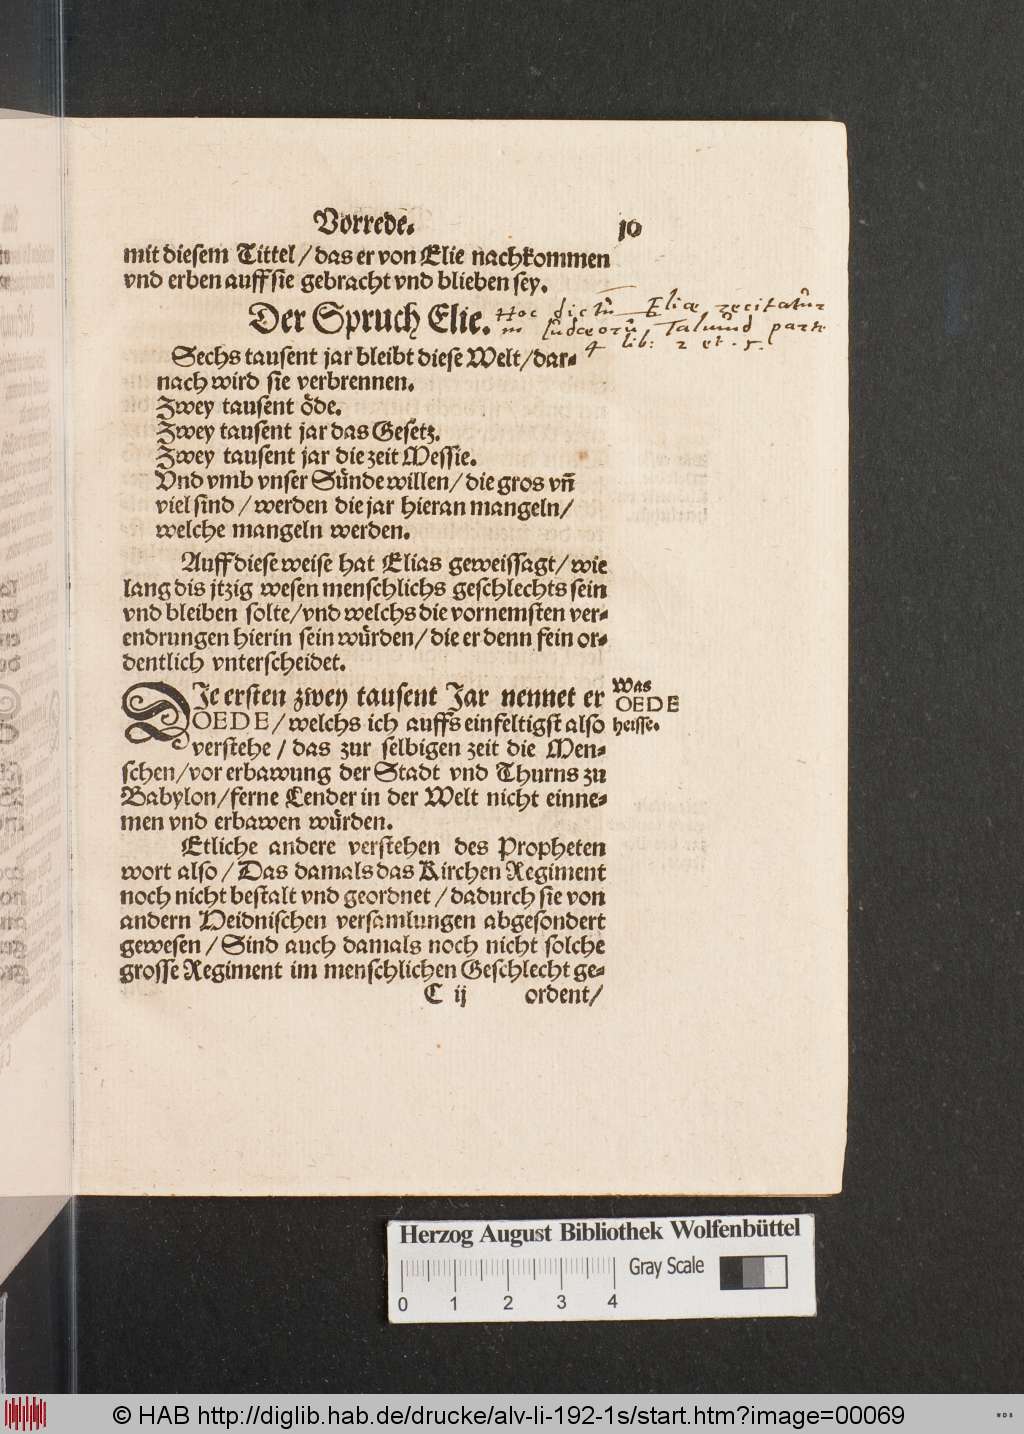 Vorrede. 10
mit diesem Tittel / das er von Elie nachkommen
vnd erben auff sie gebracht vnd blieben sey.
Der Spruch Elie.
Hoc dictū Eliæ recitatur
in Iudæorū Talmud parte
4 lib: 2 et . 5.
Sechs tausent jar bleibt diese Welt / dar-
nach wird sie verbrennen.
Zwey tausent öde.
Zwey tausent jar das Gesetz.
Zwey tausent jar die zeit Messie.
Vnd vmb vnser Sünde willen / die gros vn̄
viel sind / werden die jar hieran mangeln /
welche mangeln werden.
Auff diese weise hat Elias geweissagt / wie
lang dis jtzig wesen menschlichs geschlechts sein
vnd bleiben solte / vnd welchs die vornemsten ver-
endrungen hierin sein würden / die er denn fein or-
dentlich vnterscheidet.
DIe ersten zwey tausent Jar nennet er
OEDE / welchs ich auffs einfeltigst also
verstehe / das zur selbigen zeit die Men-
schen / vor erbawung der Stadt vnd Thurns zu
Babylon / ferne Lender in der Welt nicht einne-
men vnd erbawen würden.
Was
OEDE
heisse.
Etliche andere verstehen des Propheten
wort also / Das damals das Kirchen Regiment
noch nicht bestalt vnd geordnet / dadurch sie von
andern Heidnischen versamlungen abgesondert
gewesen / Sind auch damals noch nicht solche
grosse Regiment im menschlichen Geschlecht ge-
C ij ordent /
Herzog August Bibliothek Wolfenbüttel
Gray Scale
0 1 2 3 4
© HAB http://diglib.hab.de/drucke/alv-li-192-1s/start.htm?image=00069